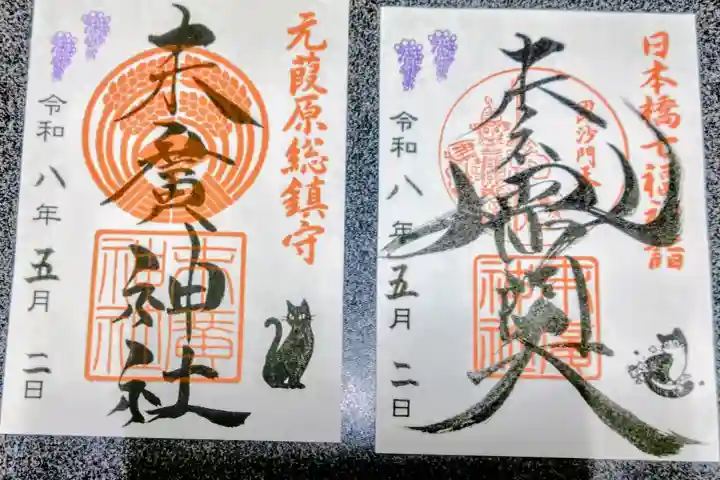 元葭原総鎮守
末廣神社
末廣神社
令和八年五月二日
日本橋七福神詣
毘沙門天
末廣神社
令和八年五月二日